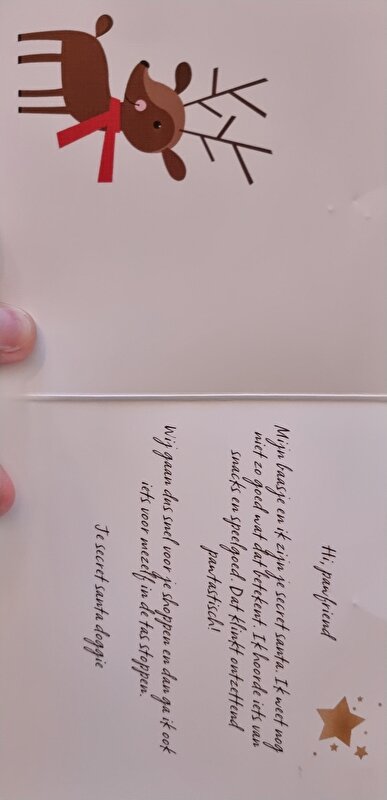 Hi, pawfriend
Mijn baasje en ik zijn je secret santa. Ik weet nog
niet zo goed wat dat betekent. Ik hoorde iets van
snacks en speelgoed. Dat klinkt ontzettend
pawtastisch!
Wij gaan dus snel voor je shoppen en dan ga ik ook
iets voor mezelf in de tas stoppen.
Je secret santa doggie